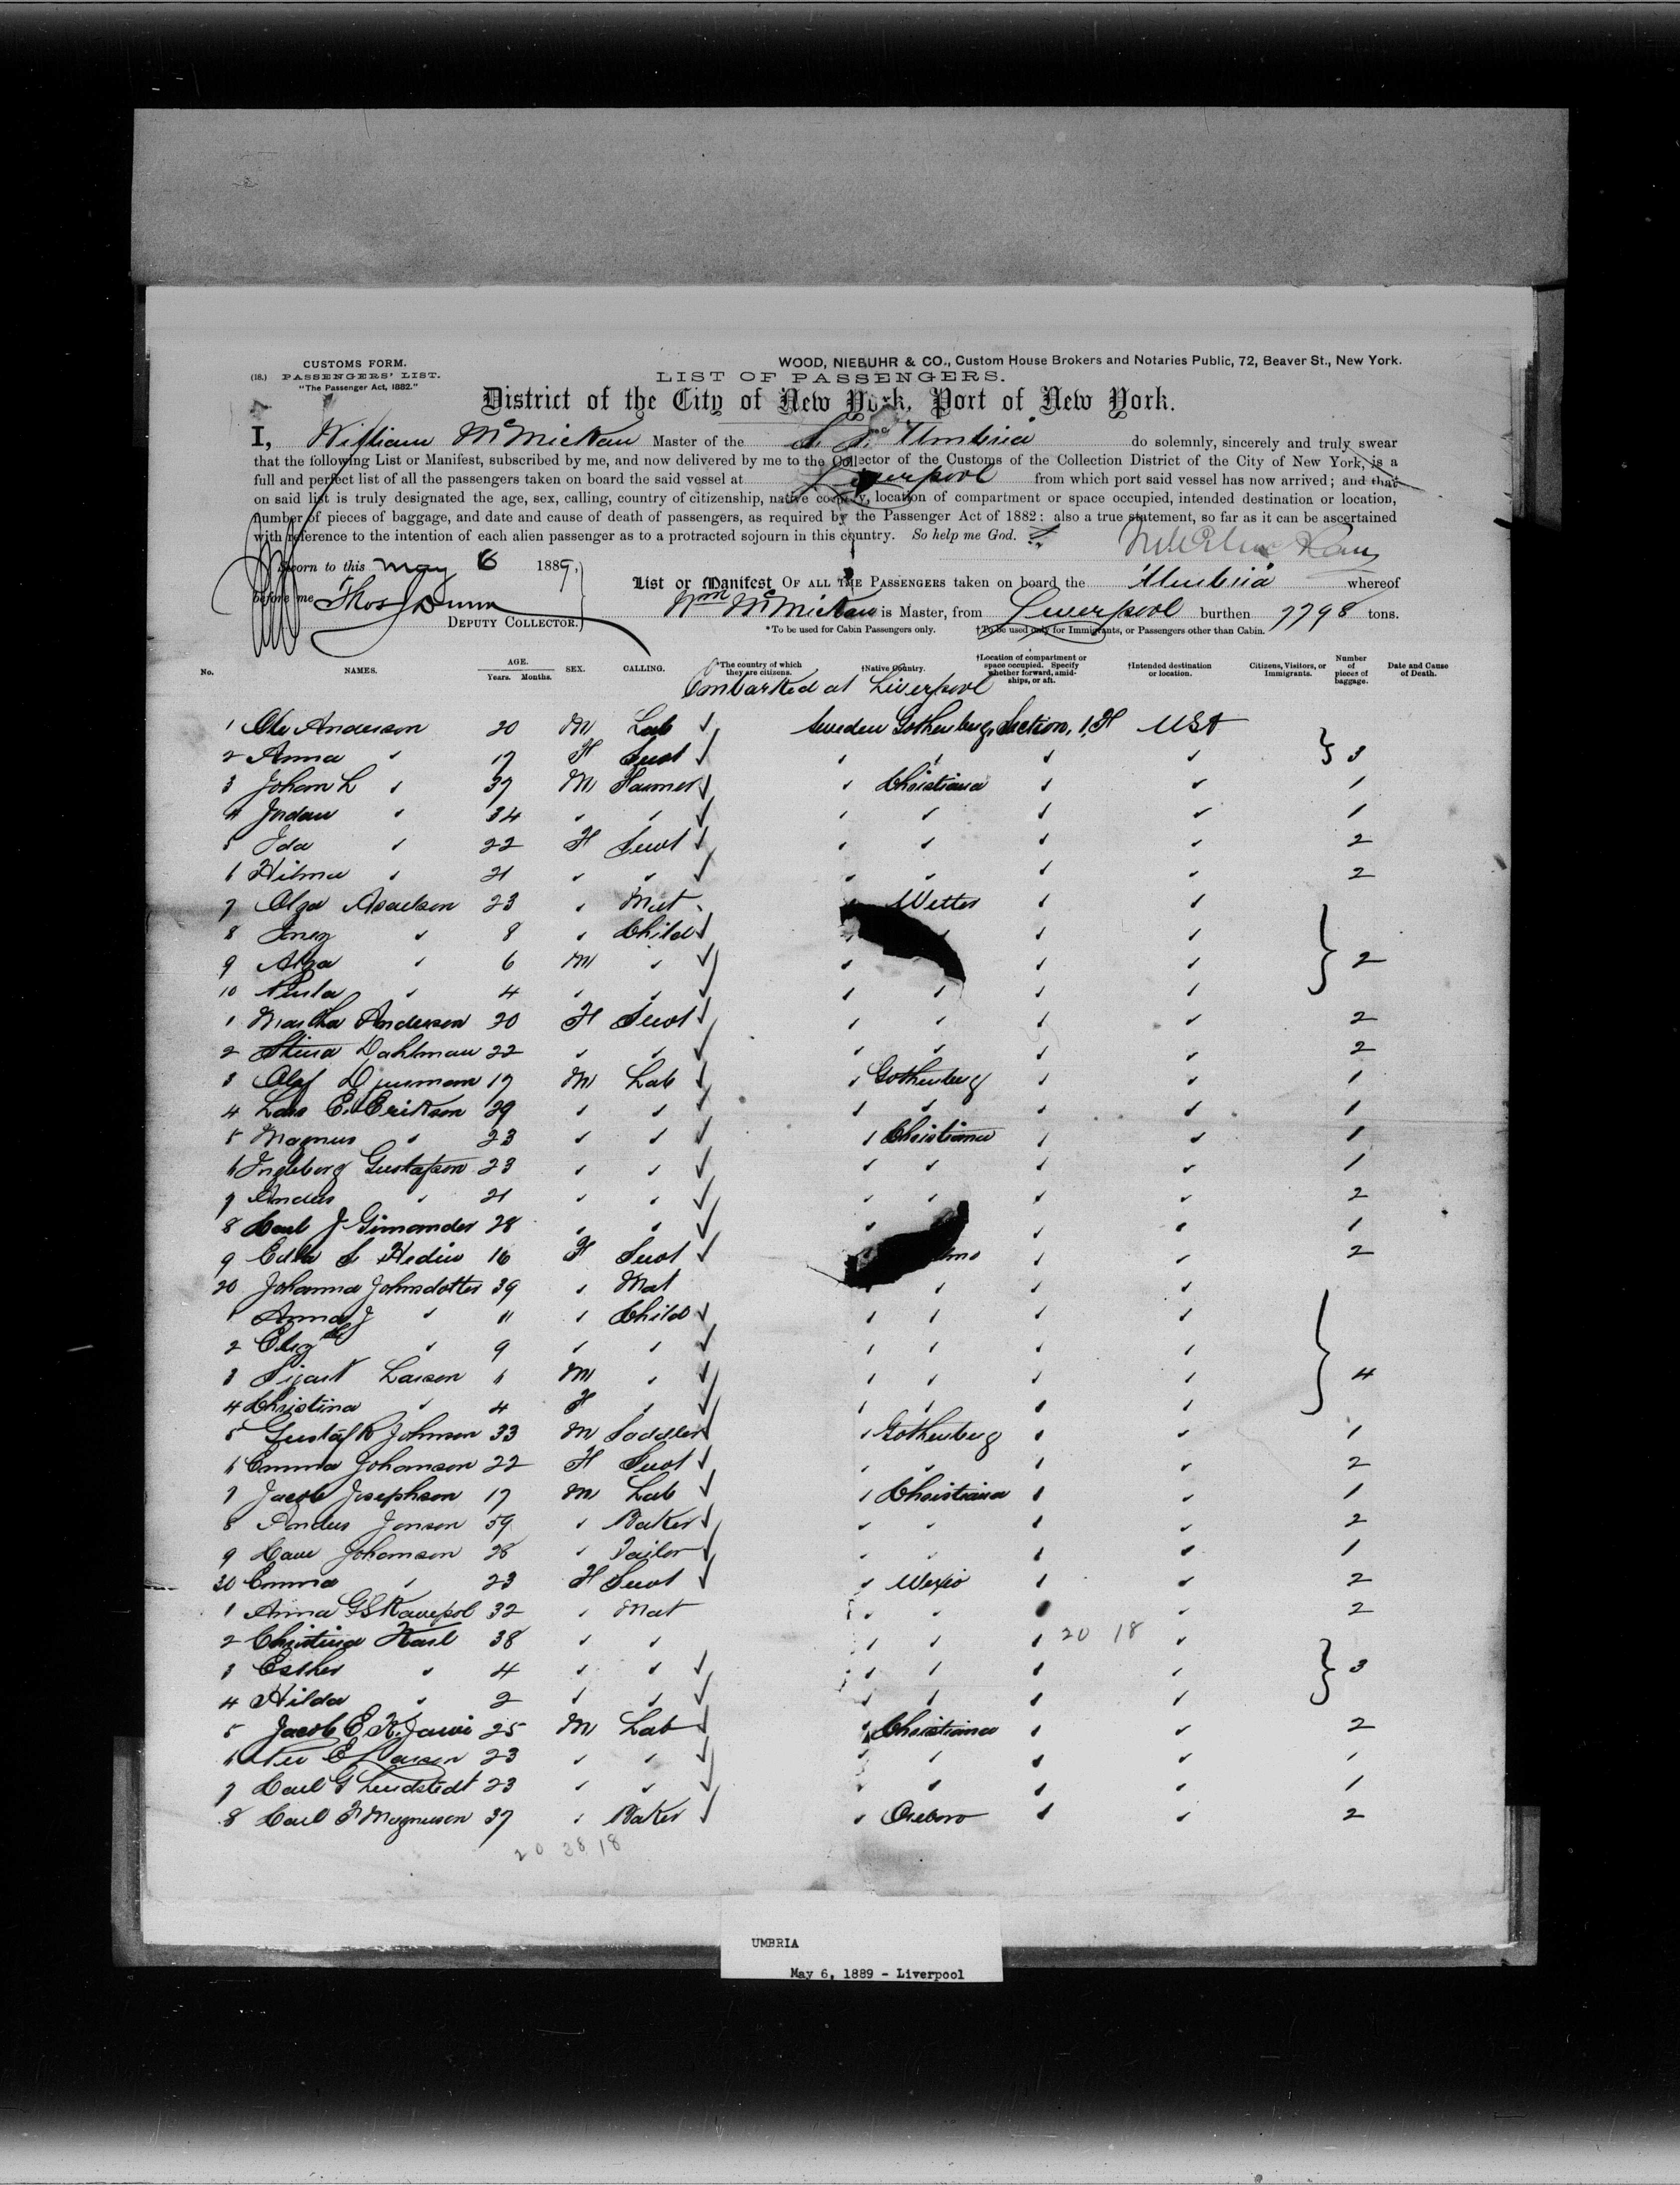 CUSTOMS FORM.
WOOD, NIEBUHR & CO., Custom House Brokers and Notaries Public, 72, Beaver St., New York.
(18.) PASSENGERS' LIST.
LIST OF PASSENGERS.
"The Passenger Act, 1882."
District of the City of New York, Port of New York.
I, William McMickan Master of the S. S. Umbria do solemnly, sincerely and truly swear
that the following List or Manifest, subscribed by me, and now delivered by me to the Collector of the Customs of the Collection District of the City of New York, is a
full and perfect list of all the passengers taken on board the said vessel at Liverpool from which port said vessel has now arrived; and that
on said list is truly designated the age, sex, calling, country of citizenship, native country, location of compartment or space occupied, intended destination or location,
number of pieces of baggage, and date and cause of death of passengers, as required by the Passenger Act of 1882: also a true statement, so far as it can be ascertained
with reference to the intention of each alien passenger as to a protracted sojourn in this country. So help me God.
Sworn to this May 6 1889,
before me Thos Dunn
DEPUTY COLLECTOR.
List or Manifest OF ALL THE PASSENGERS taken on board the Umbria whereof
Wm McMickan is Master, from Liverpool burthen 7798 tons.
*To be used for Cabin Passengers only. †To be used only for Immigrants, or Passengers other than Cabin.
No. NAMES. AGE. Years. Months. SEX. CALLING. *The country of which they are citizens. †Native Country. †Location of compartment or space occupied. Specify whether forward, amidships, or aft. †Intended destination or location. Citizens, Visitors, or Immigrants. Number of pieces of baggage. Date and Cause of Death.
Embarked at Liverpool
1 Ole Anderson 20 M Lab Sweden Gothenberg Section, 1, F USA
2 Anna " 17 F Servt " " " " 3
3 Johan L " 37 M Farmer " Christiana " " 1
4 Jordan " 34 " " " " " " 1
5 Ida " 22 F Servt " " " " 2
6 Hilma " 21 " " " " " " 2
7 Olga 23 " " " "
8 Inez " 8 " Child " "
9 " 6 M " " " " 2
10 " 4 " " " " " "
1 Martha Anderson 20 F Servt " " " " 2
2 Stina Dahlman 22 " " " " " " 2
3 Olaf 17 M Lab " Gothenberg " " 1
4 Lars E. Erikson 29 " " " " " " 1
5 Magnus " 23 " " " Christiana " " 1
6 Ingeborg Gustafson 23 " " " " " " 1
7 Andus " 21 " " " " " " 2
8 Carl J 28 " " " " " 1
9 Edla S Hedin 16 F Servt " " 2
20 Johanna Johnsdotter 39 " Mat " " "
1 Anna J " 11 " Child " " " "
2 Eliz " 9 " " " " " "
3 Larson M " " " " " 4
4 Christina " 4 F " " " " "
5 Gustaf R Johnson 33 M Saddler " Gothenberg " " 1
6 Emma Johanson 22 F Servt " " " " 2
7 Jacob Josephson 17 M Lab " Christiana " " 1
8 Andus Jonson 59 " Baker " " " " 2
9 Johanson 28 " Tailor " " " " 1
30 Emma " 23 F Servt " Wexio " " 2
1 Anna 32 " Mat " " " " 2
2 Christina Karl 38 " " " " " 20 18 "
3 Esther " 4 " " " " " " 3
4 Hilda " 2 " " " " " "
5 Jacob E. 25 M Lab " Christiana " " 2
6 E Larson 23 " " " " " " 1
7 Carl G Lindstedt 23 " " " " " " 1
8 Carl F Magnuson 37 " Baker " Orebro " " 2
20 38 18
UMBRIA
May 6, 1889 - Liverpool